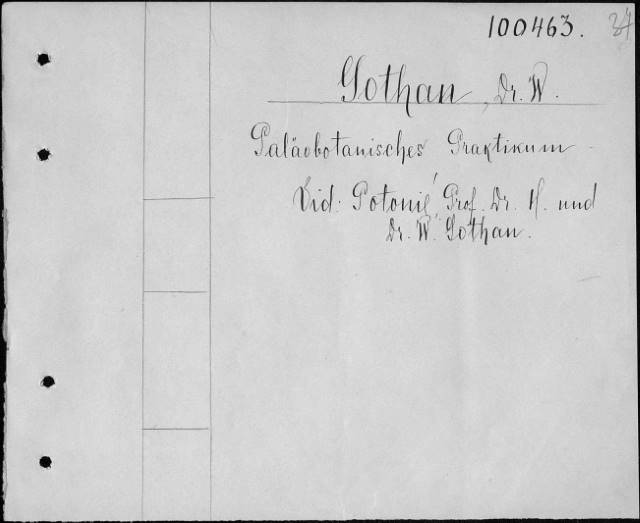 100463.
Gothan, Dr. W.
Paläobotanisches Praktikum
Vid: Potonié, Prof. Dr. H. und
Dr. W. Gothan.